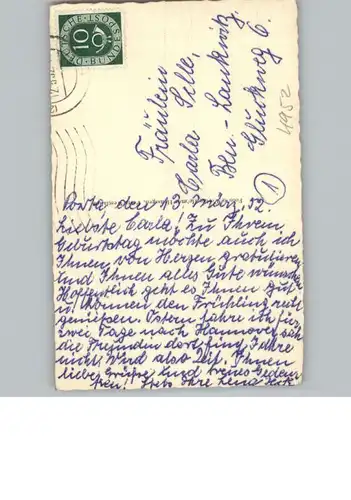 DEUTSCHE BUNDESPOST
10
Fräulein
Carla Sille,
Bln.-Lankwitz
Gluckweg 6.
1952
1
den 3. März 52.
Liebste Carla! Zu Ihrem
Geburtstag möchte auch ich
Ihnen von Herzen gratulieren
und Ihnen alles Gute wünschen
Hoffentlich geht es Ihnen gut
u. können den Frühling recht
genießen. Ostern fahre ich für
zwei Tage nach Hannover, sah
die Freundin dort fünf Jahre
nicht, wird also Zeit. Ihnen
liebe Grüße und treues Geden
ken! Stets Ihre Lena